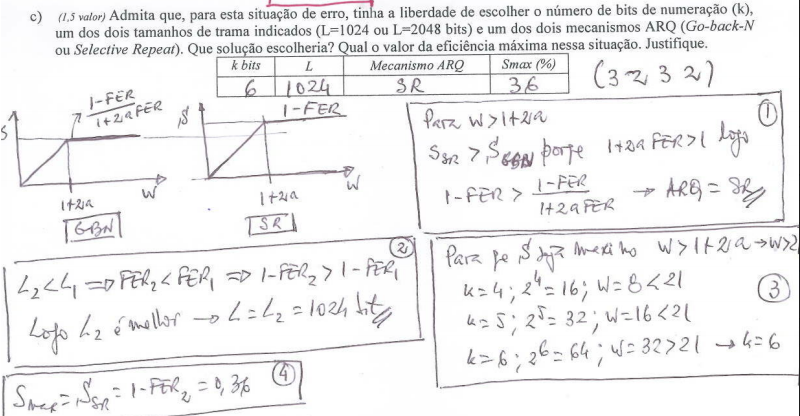 c) (1,5 valor) Admita que, para esta situação de erro, tinha a liberdade de escolher o número de bits de numeração (k),
um dos dois tamanhos de trama indicados (L=1024 ou L=2048 bits) e um dos dois mecanismos ARQ (Go-back-N
ou Selective Repeat). Que solução escolheria? Qual o valor da eficiência máxima nessa situação. Justifique.
k bits L Mecanismo ARQ Smax (%)
6 1024 SR 36
(3 2 3 2)
S
1-FER
1+2aFER
1+2a W
GBN
S
1-FER
1+2a W
SR
①
Para W>1+2a
S SR > S GBN porque 1+2a FER>1 logo
1-FER > 1-FER / 1+2aFER → ARQ = SR
②
L2<L1 ⇒ FER2<FER1 ⇒ 1-FER2 > 1-FER1
Logo L2 é melhor → L=L2=1024 bit
③
Para que S seja maximo W>1+2a→W>2
k=4; 2^4=16; W=8<21
k=5; 2^5=32; W=16<21
k=6; 2^6=64; W=32>21 → k=6
④
Smax = S SR = 1-FER2 = 0,36